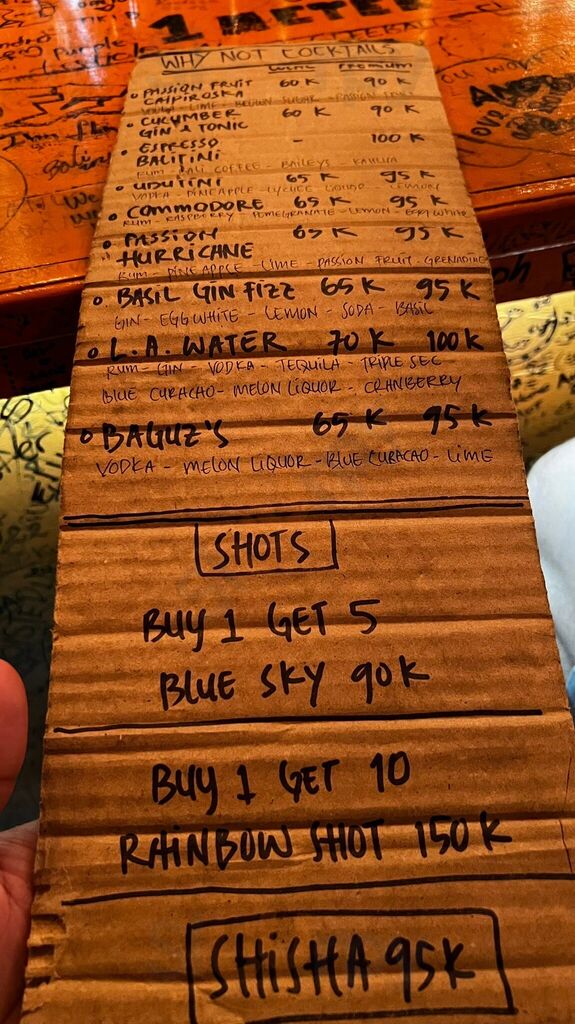 1 METER
WHY NOT COCKTAILS
LOCAL PREMIUM
PASSION FRUIT 60 K 90 K
CAIPIROSKA
VODKA - LIME - BROWN SUGAR - PASSION FRUIT
CUCUMBER 60 K 90 K
GIN & TONIC
ESPRESSO - 100 K
BALITINI
RUM - BALI COFFEE - BAILEYS KAHLUA
UBUTINI 65 K 95 K
VODKA - PINEAPPLE - LYCHEE LIQUOR - LEMON
COMMODORE 65 K 95 K
RUM - RASPBERRY - POMEGRANATE - LEMON - EGG WHITE
PASSION 65 K 95 K
HURRICANE
RUM - PINEAPPLE - LIME - PASSION FRUIT - GRENADINE
BASIL GIN FIZZ 65 K 95 K
GIN - EGG WHITE - LEMON - SODA - BASIL
L.A. WATER 70 K 100 K
RUM - GIN - VODKA - TEQUILA - TRIPLE SEC
BLUE CURACHO - MELON LIQUOR - CRANBERRY
BAGUZ'S 65 K 95 K
VODKA - MELON LIQUOR - BLUE CURACAO - LIME
SHOTS
BUY 1 GET 5
BLUE SKY 90 K
BUY 1 GET 10
RAINBOW SHOT 150 K
SHISHA 95K